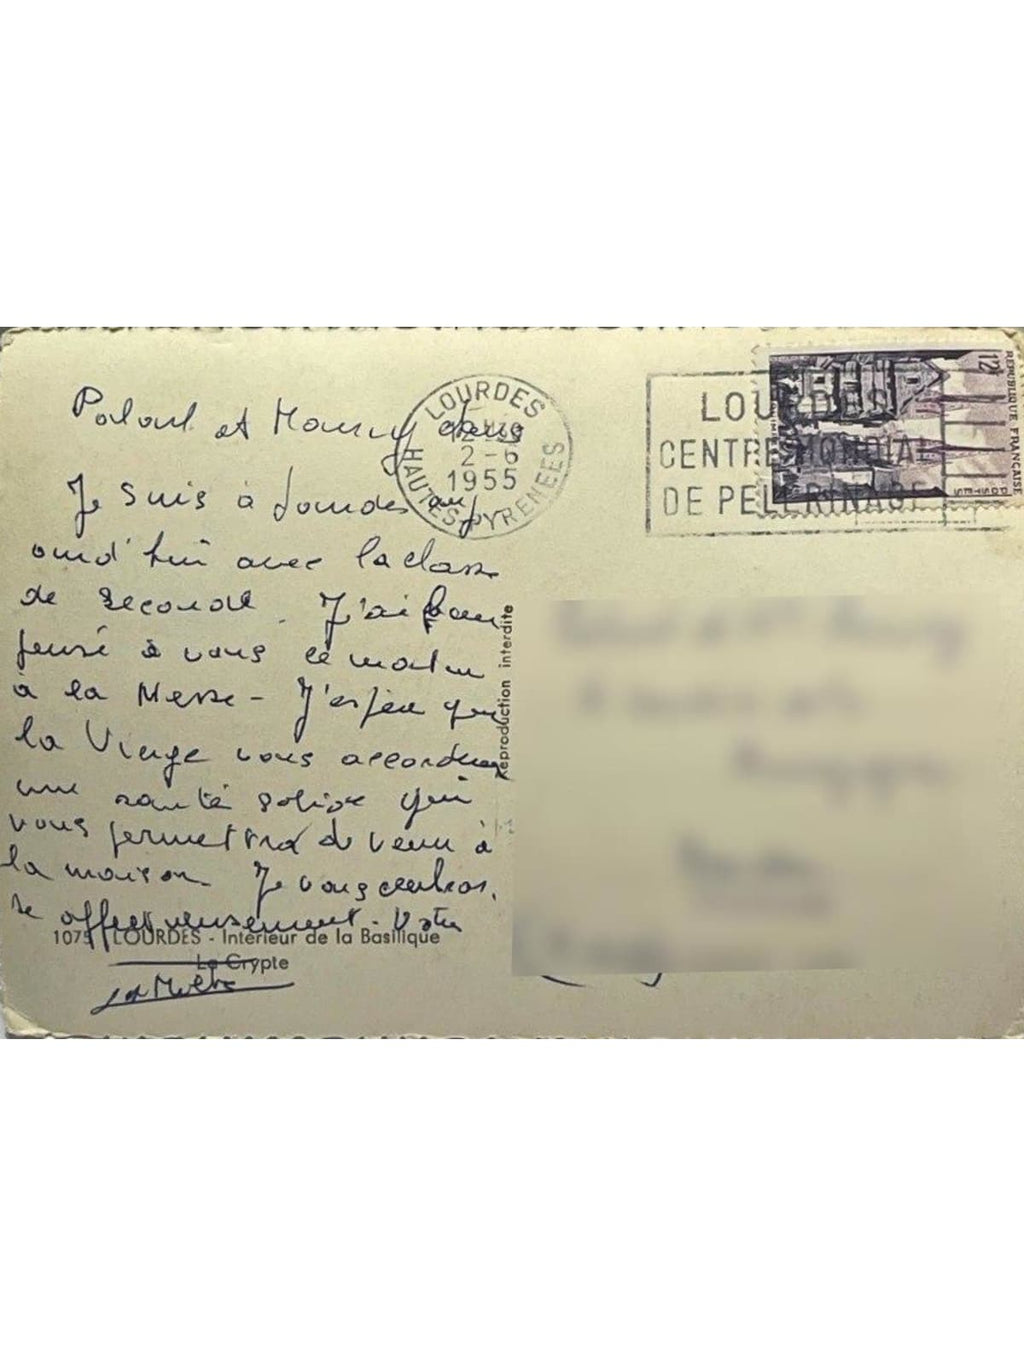 LOURDES
12-39
2-6
1955
HAUTES-PYRENEES
LOURDES
CENTRE MONDIAL
DE PELERINAGE
12F
REPUBLIQUE FRANCAISE
POSTES
et chers
Je suis à Lourdes auj
ourd'hui avec la classe
de seconde. J'ai bien
pensé à vous ce matin
à la Messe - J'espère que
la Vierge vous accordera
une santé solide qui
vous permettra de venir à
la maison. Je vous embras.
se affectueusement. Votre
1075 LOURDES - Intérieur de la Basilique
La Crypte
Reproduction interdite